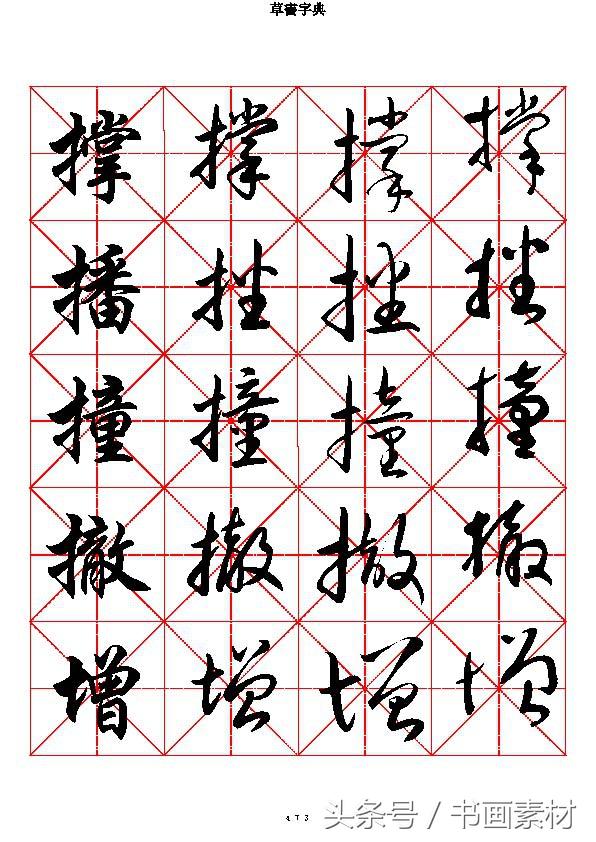 草書字典
撑 撑 撑 撑
播 播 播 播
撞 撞 撞 撞
撤 撤 撤 撤
增 增 增 增
473
头条号 / 书画素材